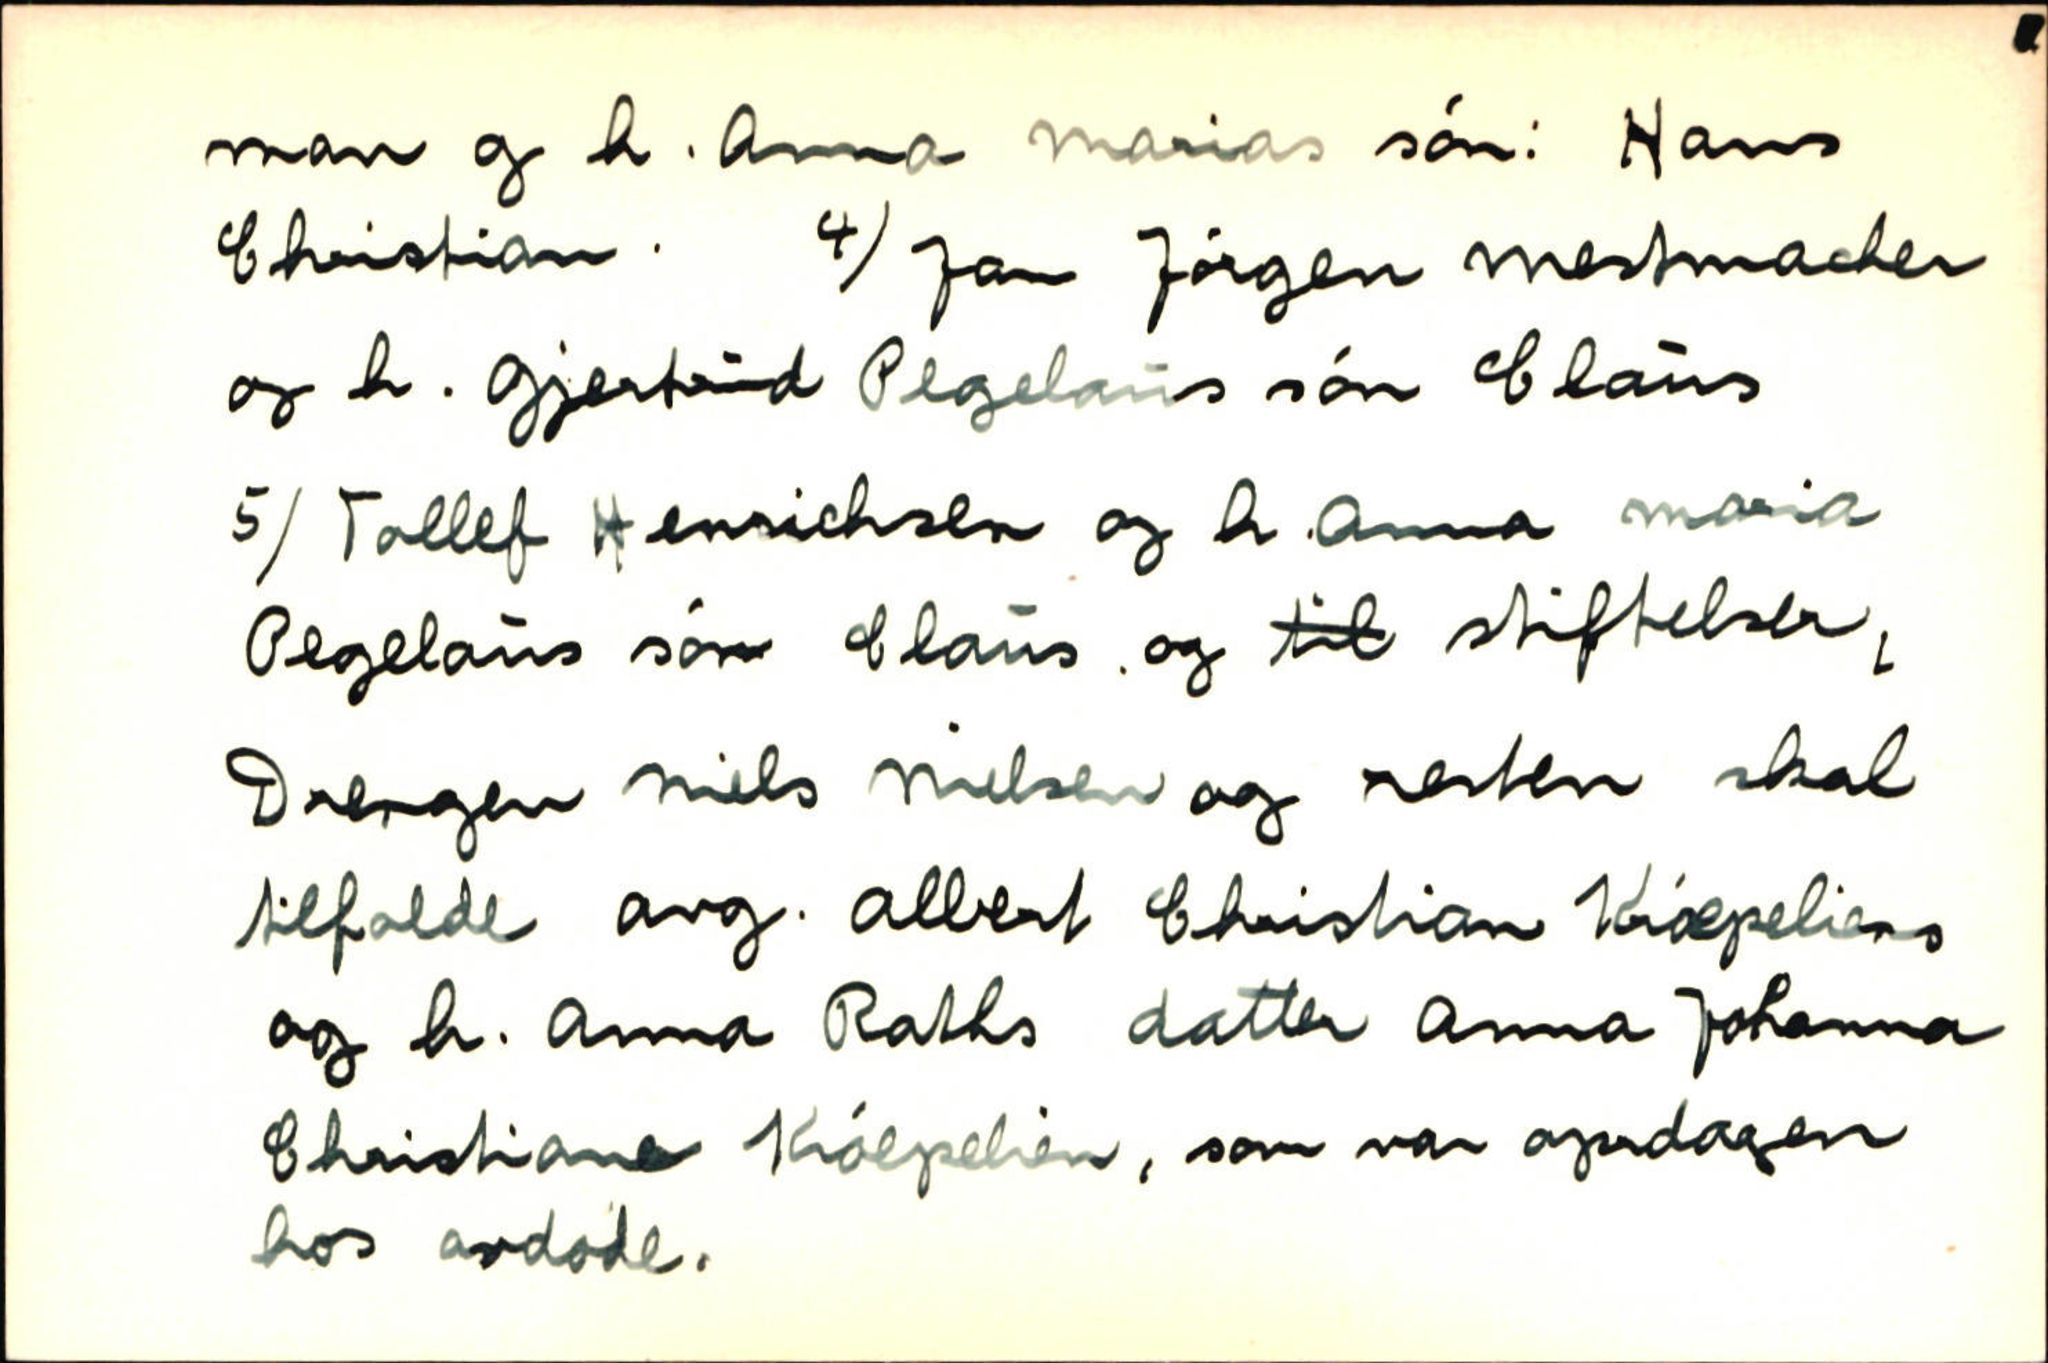 man og h. Anna Marias són: Hans
Christian. 4/ Jan Jórgen Mestmacher
og h. Gjertrud Pegelaus són Claus
5/ Tollef Henrichsen og h. Anna Maria
Pegelaus són Claus. og til stiftelser,
Drengen Niels Nielsen og resten skal
tilfalde avg. Albert Christian Króepeliens
og h. Anna Raths datter Anna Johanna
Christiane Króepelien, som var opdragen
hos avdøde.